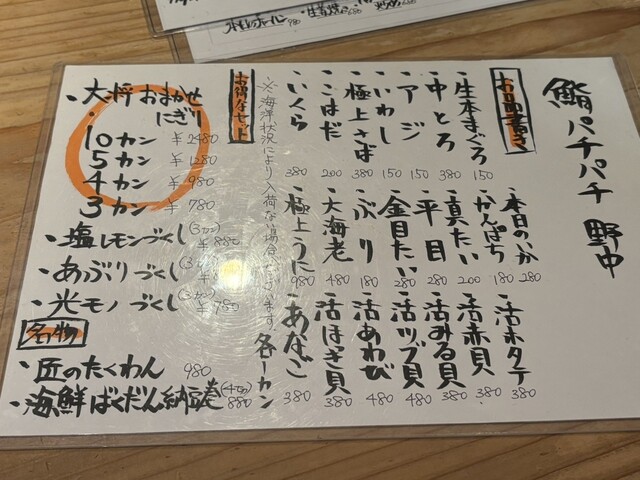 鮨パチパチ 野中
お品書き
・生本まぐろ 150
・中とろ 380
・アジ 150
・いわし 150
・極上さば 380
・こはだ 200
・いくら 380
・本日のいか 280
・かんぱち 180
・真たい 200
・平目 280
・金目たい 280
・ぶり 180
・大海老 480
・極上うに 980
・活ホタテ 380
・活赤貝 380
・活みる貝 380
・活ツブ貝 480
・活あわび 480
・活ほっき貝 380
・あなご 380
各一カン
※海洋状況により入荷ない場合ございます
お得なセット
・大将おまかせにぎり
10カン ¥2480
5カン ¥1280
4カン ¥980
3カン ¥780
・塩レモンづくし(3カン) ¥880
・あぶりづくし(3カン)
・光モノづくし(3カン) ¥780
名物
・匠のたくわん 980
・海鮮ばくだん納豆巻(4コ) 880